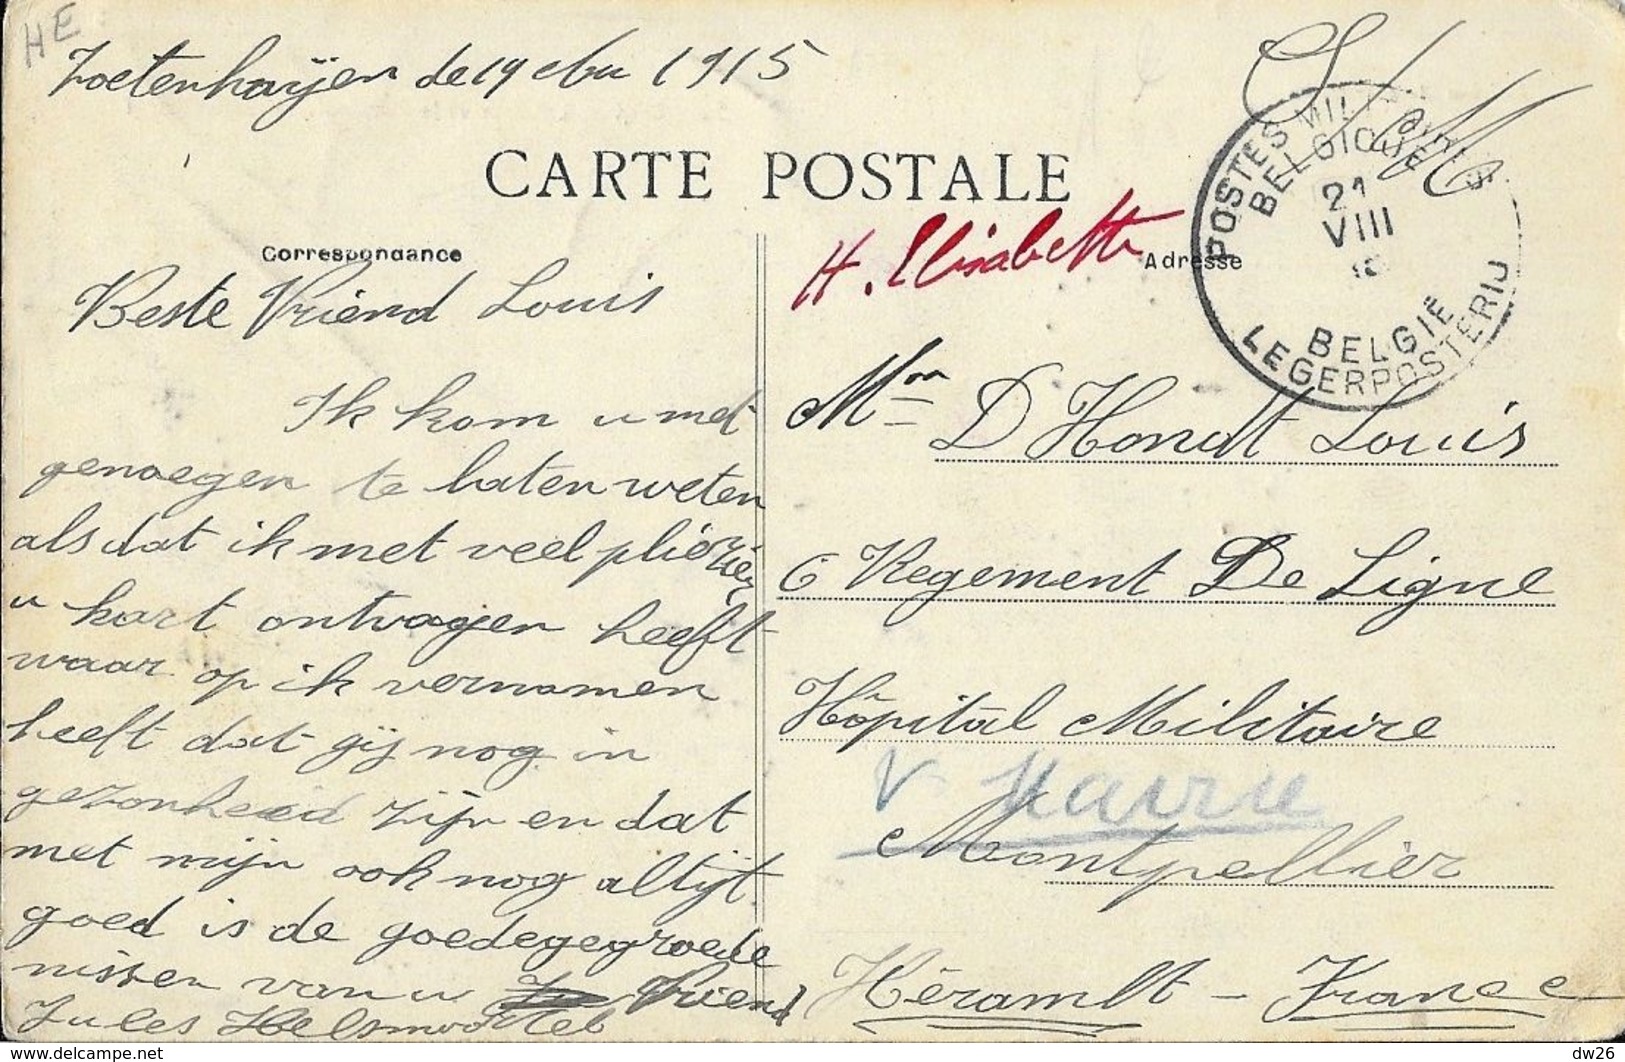 HE
Zoetenhaijen de 19 1915
CARTE POSTALE
POSTES MILITAIRES
BELGIQUE
21
VIII
BELGIË
LEGERPOSTERIJ
Correspondance
H. Elisabeth
Adresse
Beste Vriend Louis
Ik kom u met
genoegen te laten weten
als dat ik met veel plieizier
u kart ontvagen heeft
waar op ik vernomen
heeft dat gij nog in
gezonheid zijn en dat
met mijn ook nog altijt
goed is de goedegegroede
nissen van u Vriend
Jules
Mon D'Hondt Louis
6 Regement De Ligne
Hôpital Militaire
V. Havre
Montpellier
Héramlt - France
delcampe.net
dw26